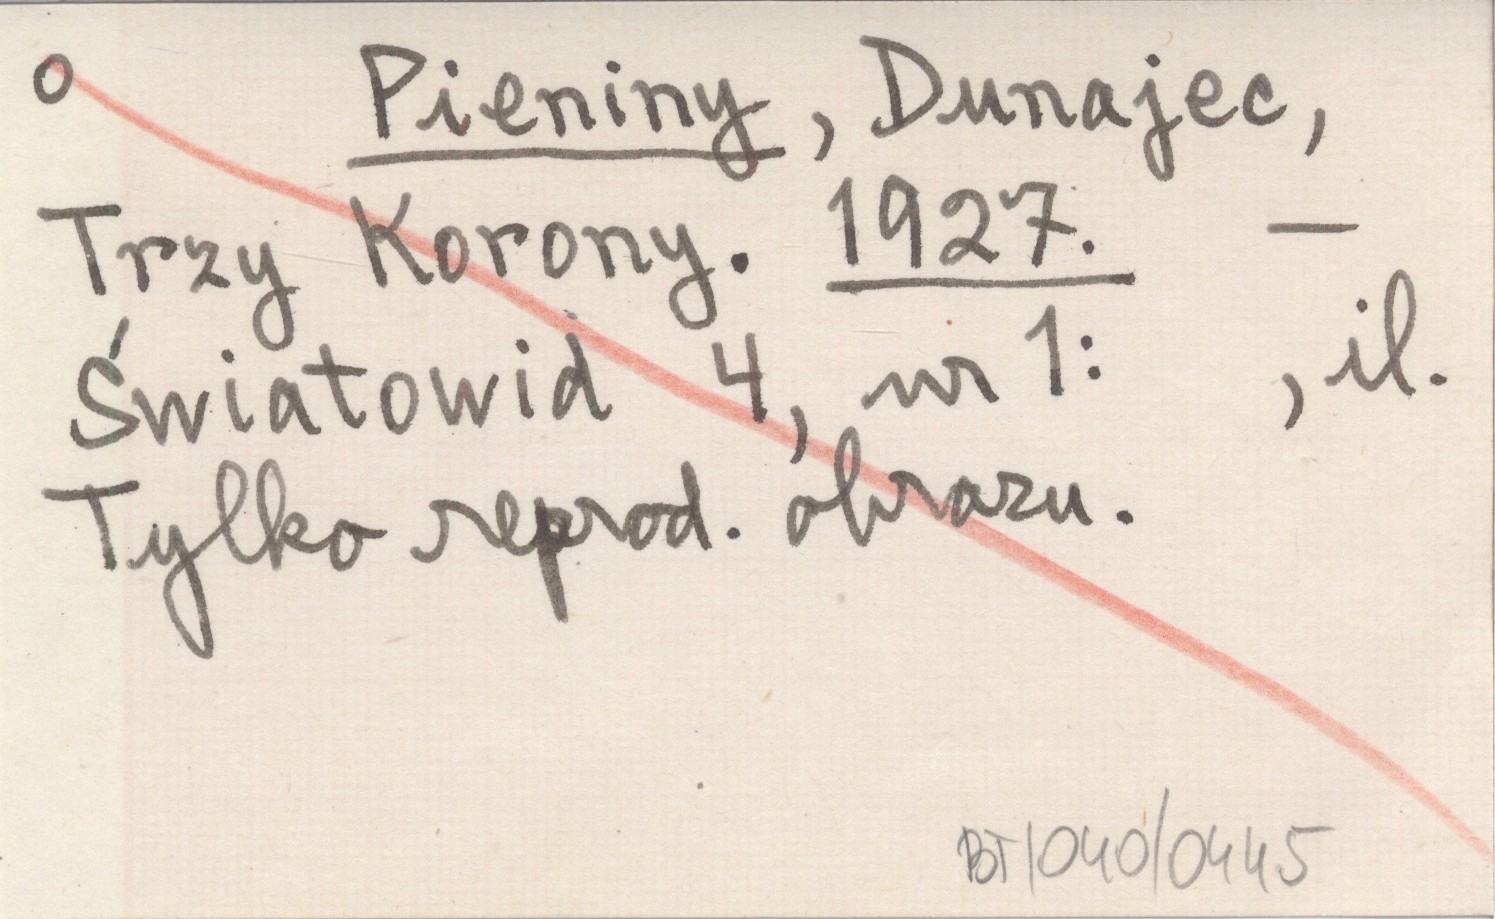 o Pieniny, Dunajec,
Trzy Korony. 1927. —
Światowid 4, nr 1: , il.
Tylko reprod. obrazu.
BT/040/0445